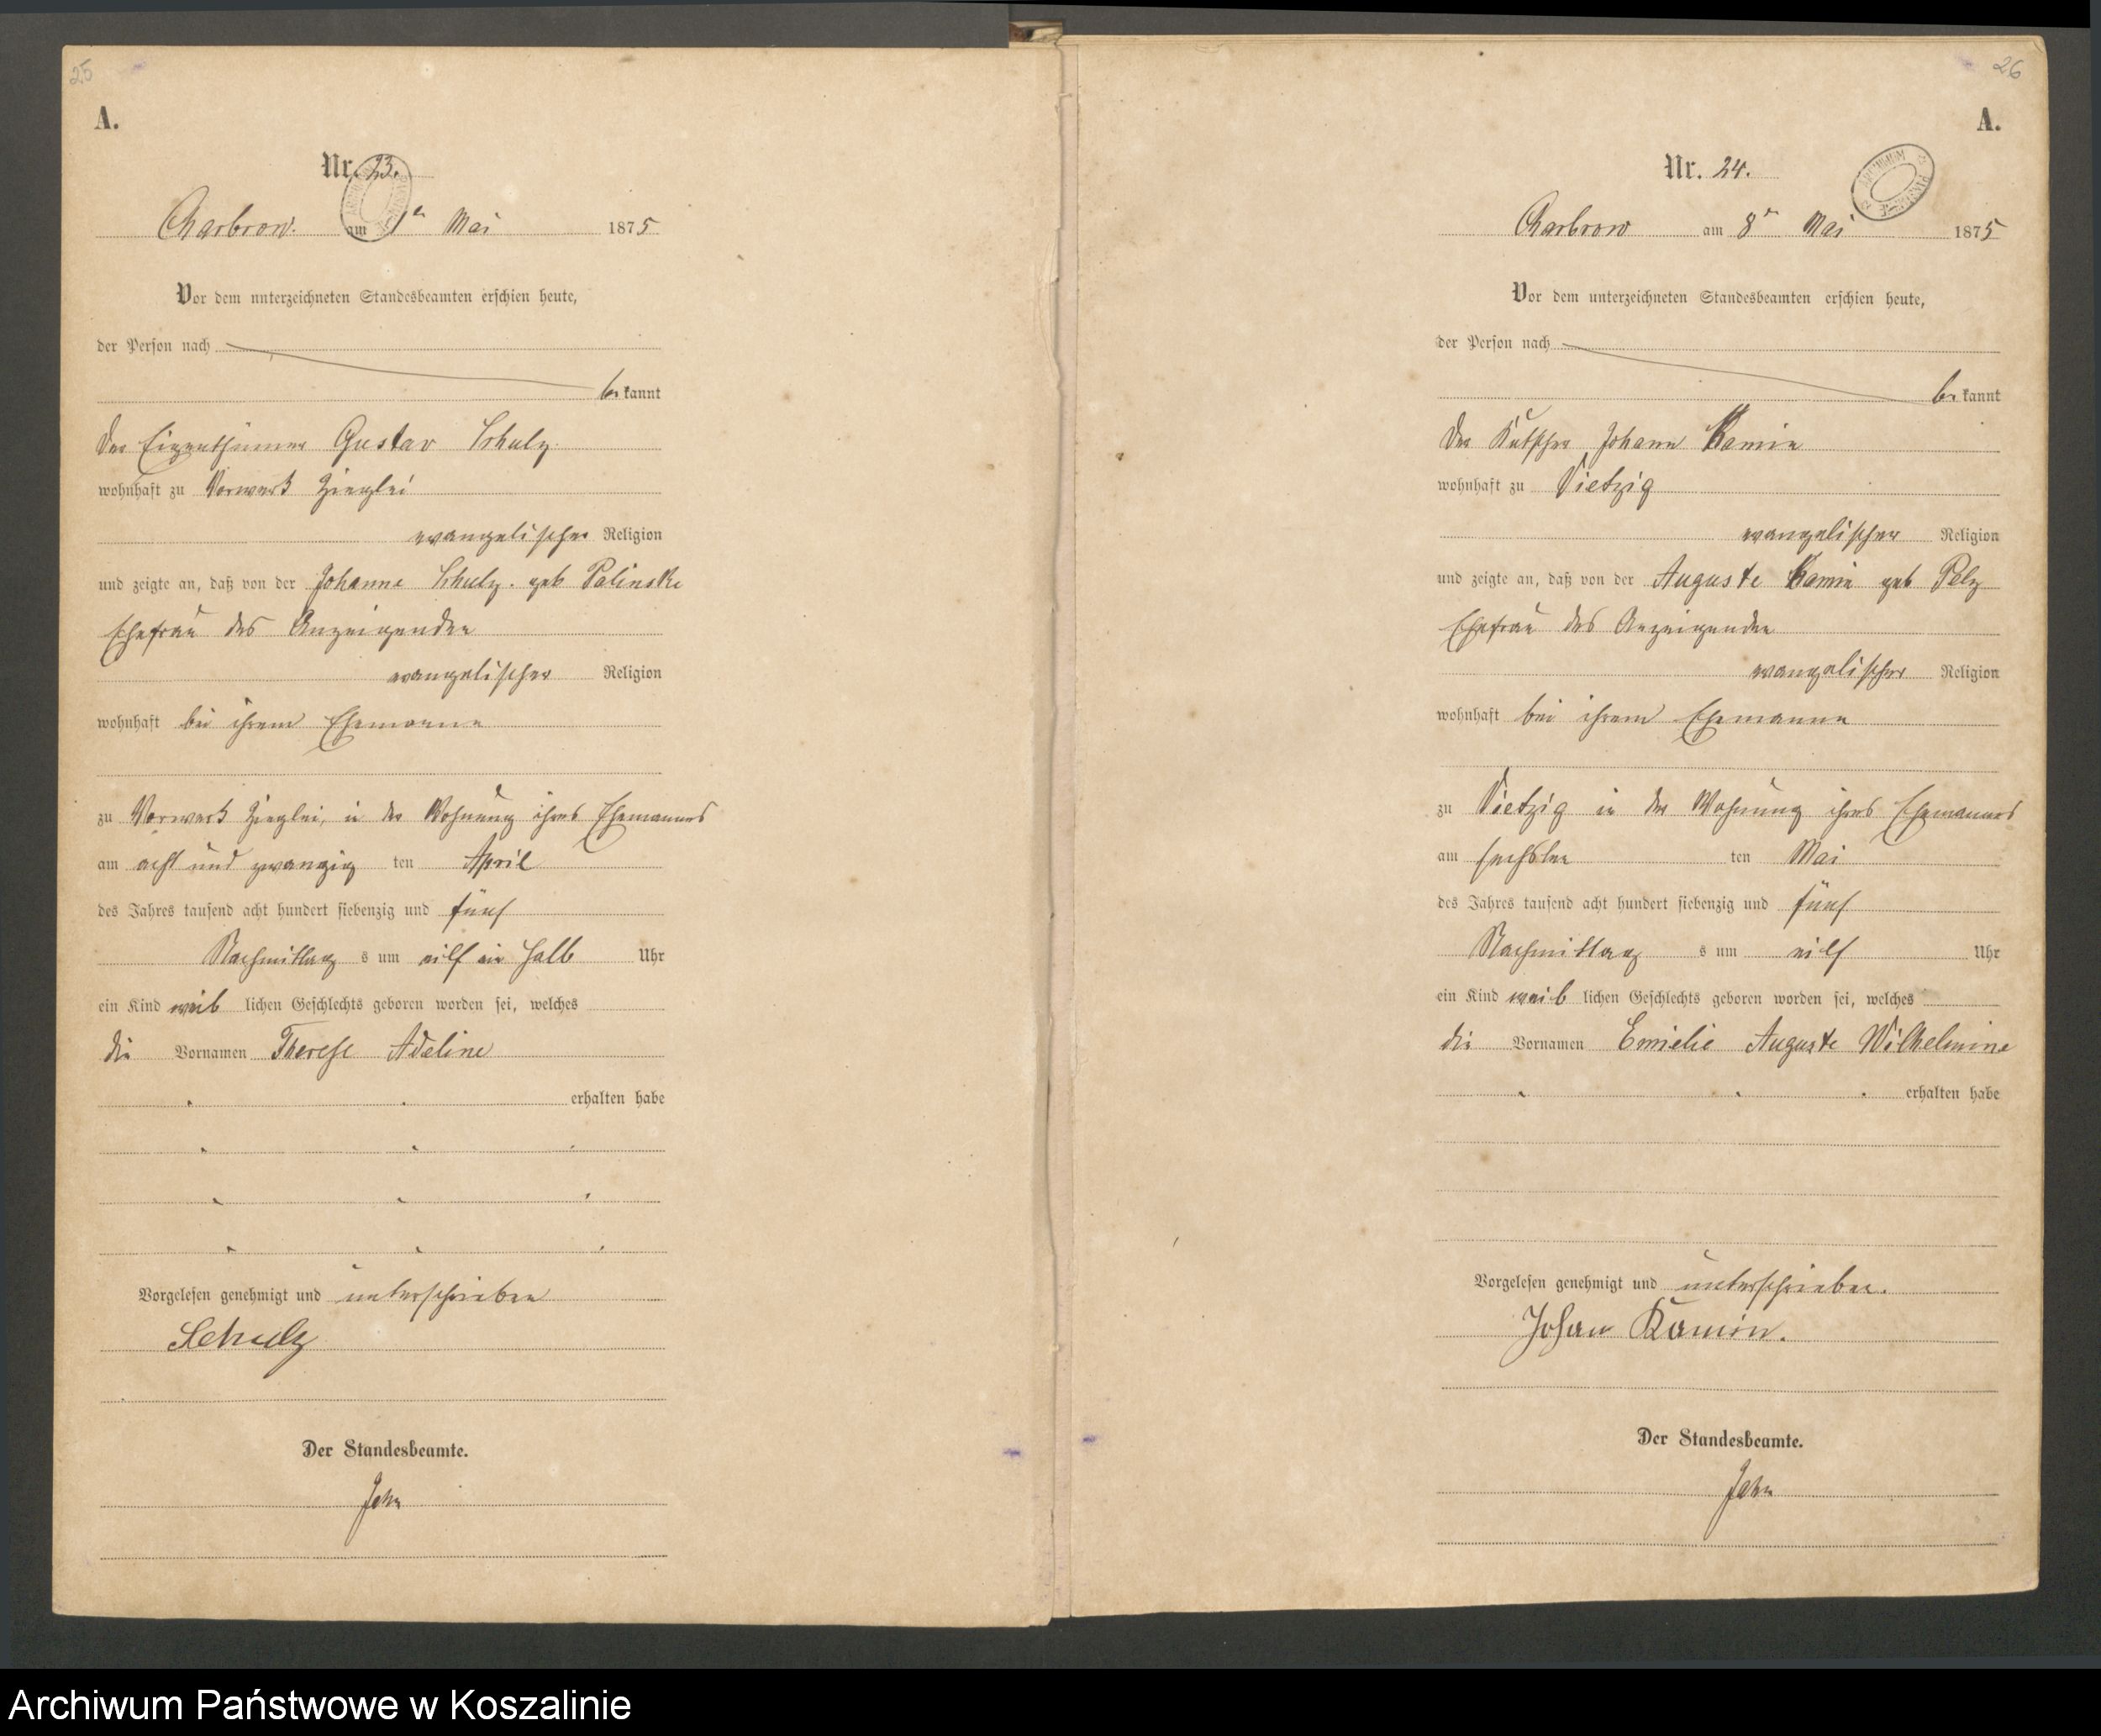 25
A.
Nr. 23.
Charbrow. am 1en Mai 1875
Vor dem unterzeichneten Standesbeamten erschien heute,
der Person nach
bekannt
der Eigenthümer Gustav Schulz
wohnhaft zu Vorwerk Zieglei
evangelischer Religion
und zeigte an, daß von der Johanne Schulz. geb Palinske
Ehefrau des Anzeigenden
evangelischer Religion
wohnhaft bei ihrem Ehemanne
zu Vorwerk Zieglei, in der Wohnung ihres Ehemannes
am acht und zwanzig ten April
des Jahres tausend acht hundert siebenzig und fünf
Nachmittag s um eilf ein halb Uhr
ein Kind weib lichen Geschlechts geboren worden sei, welches
die Vornamen Therese Adeline
erhalten habe
Vorgelesen genehmigt und unterschrieben
Schulz
Der Standesbeamte.
Jahn
26
A.
Nr. 24.
Charbrow am 8en Mai 1875
Vor dem unterzeichneten Standesbeamten erschien heute,
der Person nach
bekannt
der Kutscher Johann Kamin
wohnhaft zu Vietzig
evangelischer Religion
und zeigte an, daß von der Auguste Kamin geb Pelz
Ehefrau des Anzeigenden
evangelischer Religion
wohnhaft bei ihrem Ehemanne
zu Vietzig in der Wohnung ihres Ehemannes
am sechsten ten Mai
des Jahres tausend acht hundert siebenzig und fünf
Nachmittag s um eilf Uhr
ein Kind weib lichen Geschlechts geboren worden sei, welches
die Vornamen Emielie Auguste Wilhelmine
erhalten habe
Vorgelesen genehmigt und unterschrieben.
Johan Kamin.
Der Standesbeamte.
Jahn
Archiwum Państwowe w Koszalinie